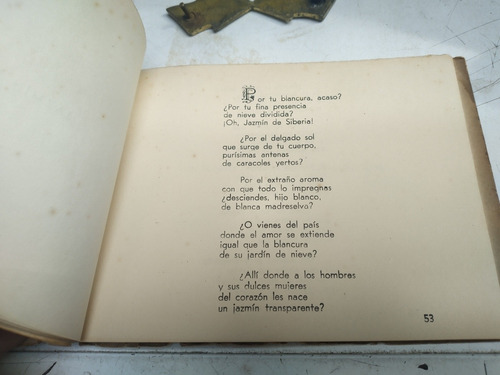 Por tu blancura, acaso?
¿Por tu fina presencia
de nieve dividida?
¡Oh, Jazmín de Siberia!
¿Por el delgado sol
que surge de tu cuerpo,
purísimas antenas
de caracoles yertos?
Por el extraño aroma
con que todo lo impregnas
¿desciendes, hijo blanco,
de blanca madreselva?
¿O vienes del país
donde el amor se extiende
igual que la blancura
de su jardín de nieve?
¿Allí donde a los hombres
y sus dulces mujeres
del corazón les nace
un jazmín transparente?
53